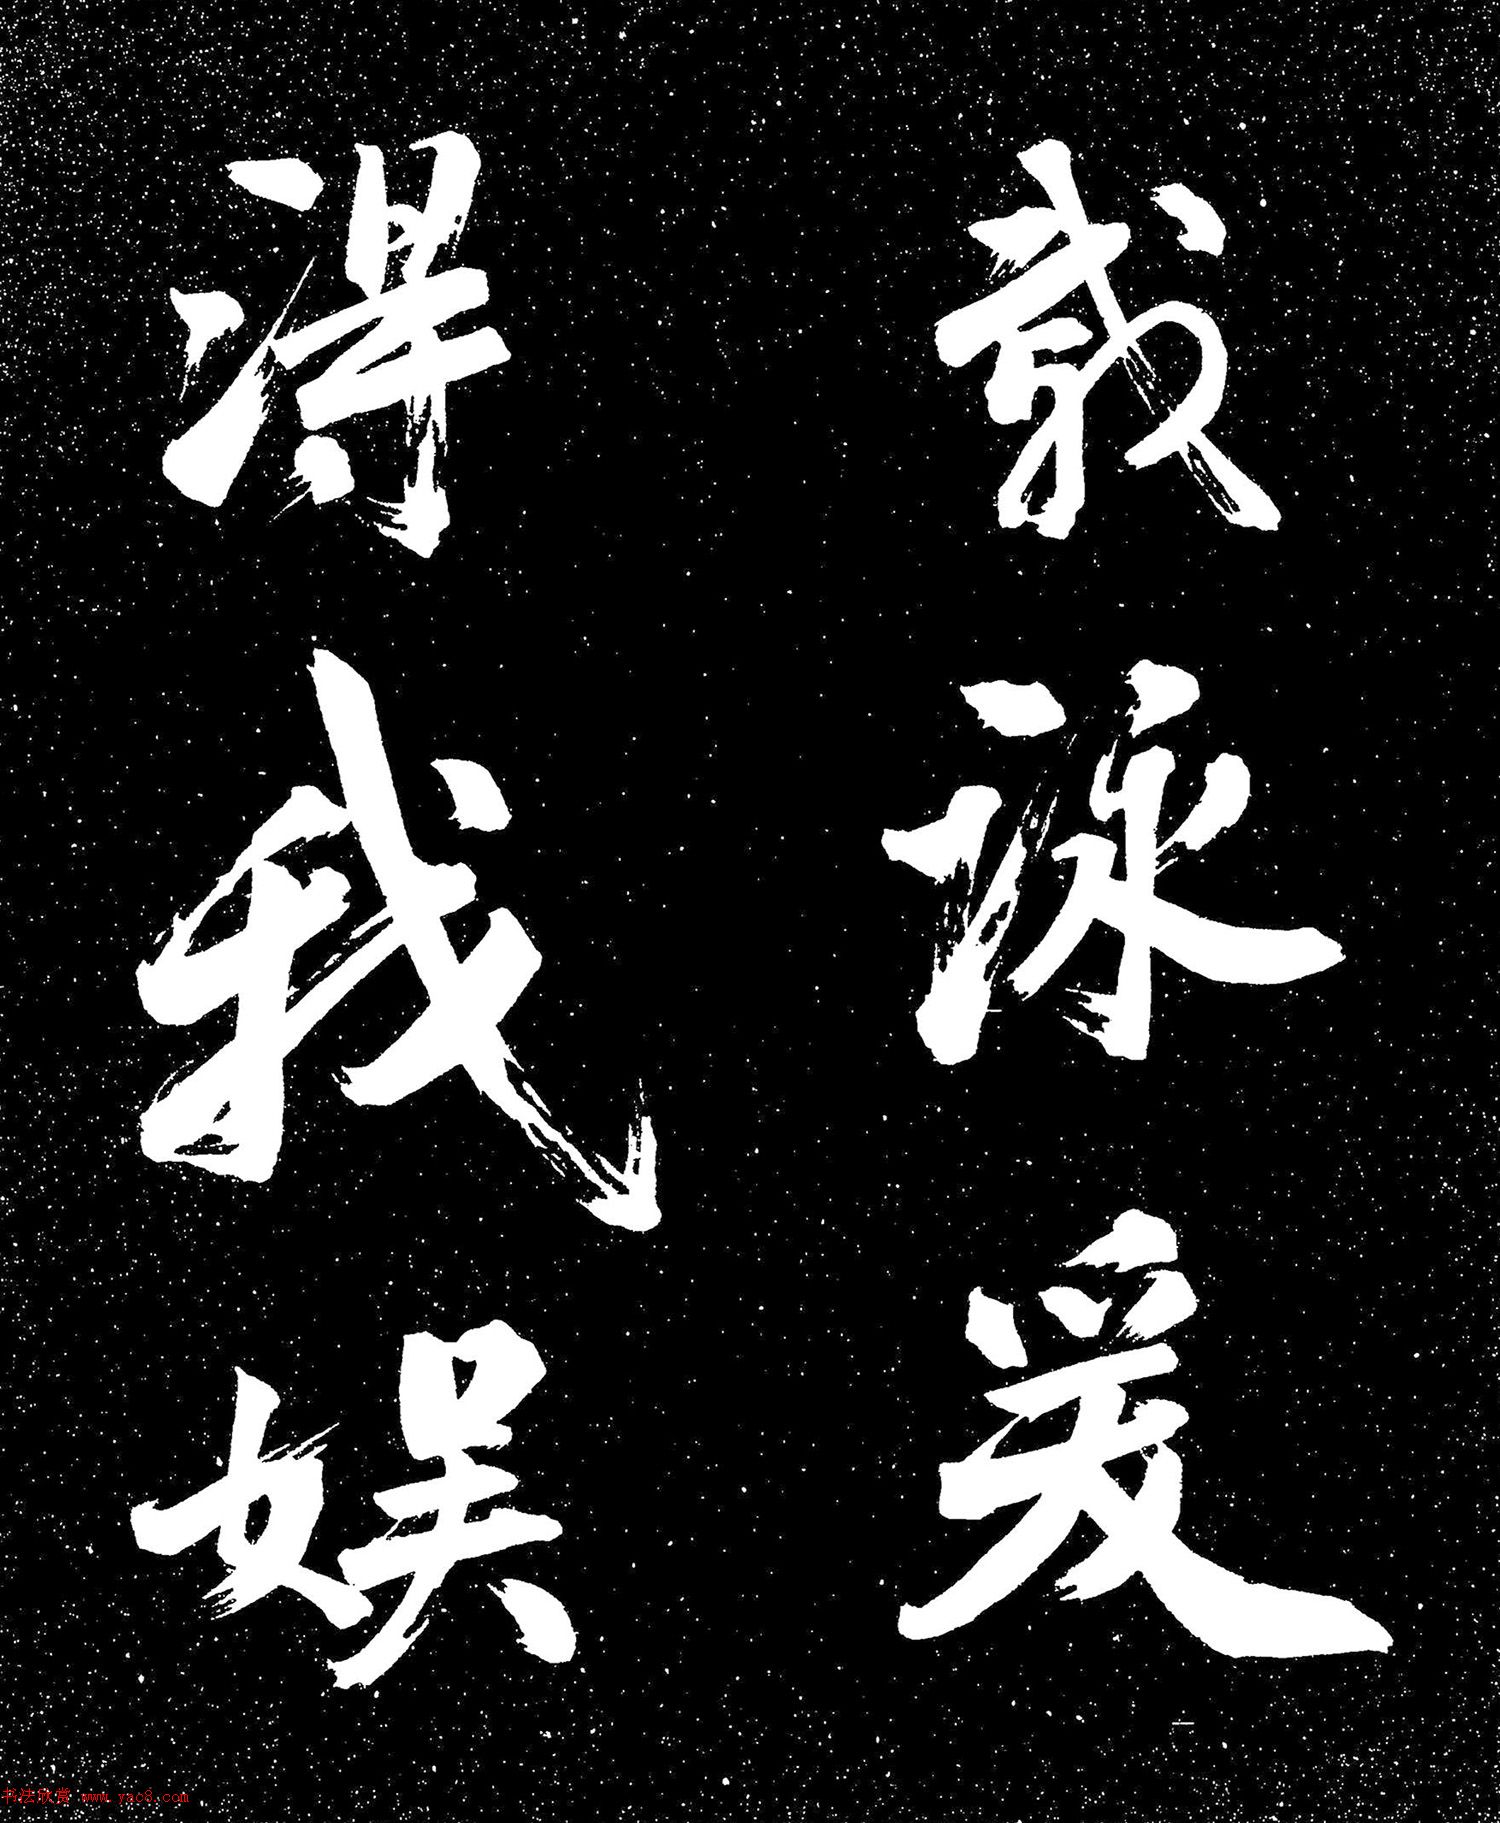 载咏爰
得我娱
书法欣赏 www.yac8.com